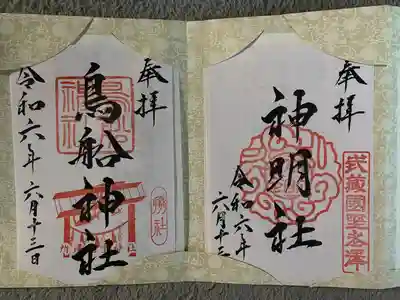 奉拝
神明社
令和六年
六月十三
武蔵國
奉拝
鳥船神社
令和六年 六月十三日